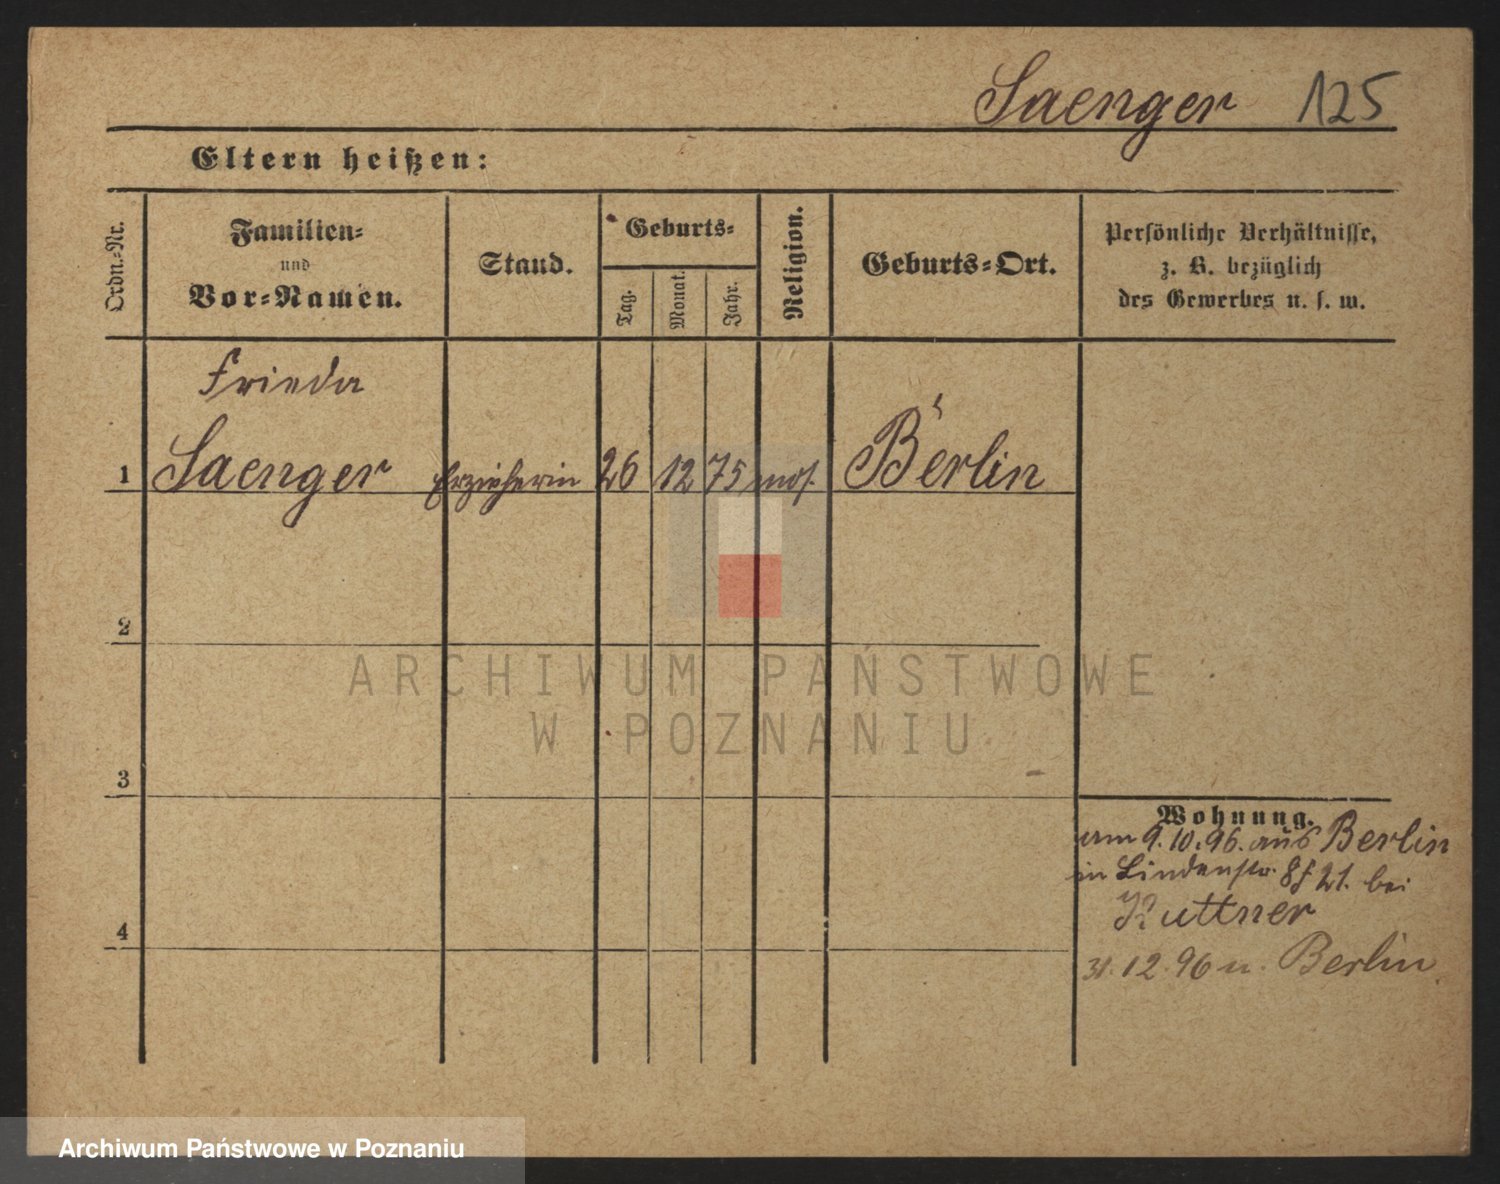 Saenger 125
Eltern heißen:
Ordn.-Nr.
Familien-
und
Vor-Namen.
Stand.
Geburts-
Tag.
Monat.
Jahr.
Religion.
Geburts-Ort.
Persönliche Verhältnisse,
z. B. bezüglich
des Gewerbes u. s. w.
Frieda
1 Saenger Erzieherin 26 12 75 mos. Berlin
2
3
4
Wohnung.
am 9.10.96. aus Berlin
in Lindenstr. 21. bei
Kuttner
31.12.96 n. Berlin
ARCHIWUM PAŃSTWOWE
W POZNANIU
Archiwum Państwowe w Poznaniu